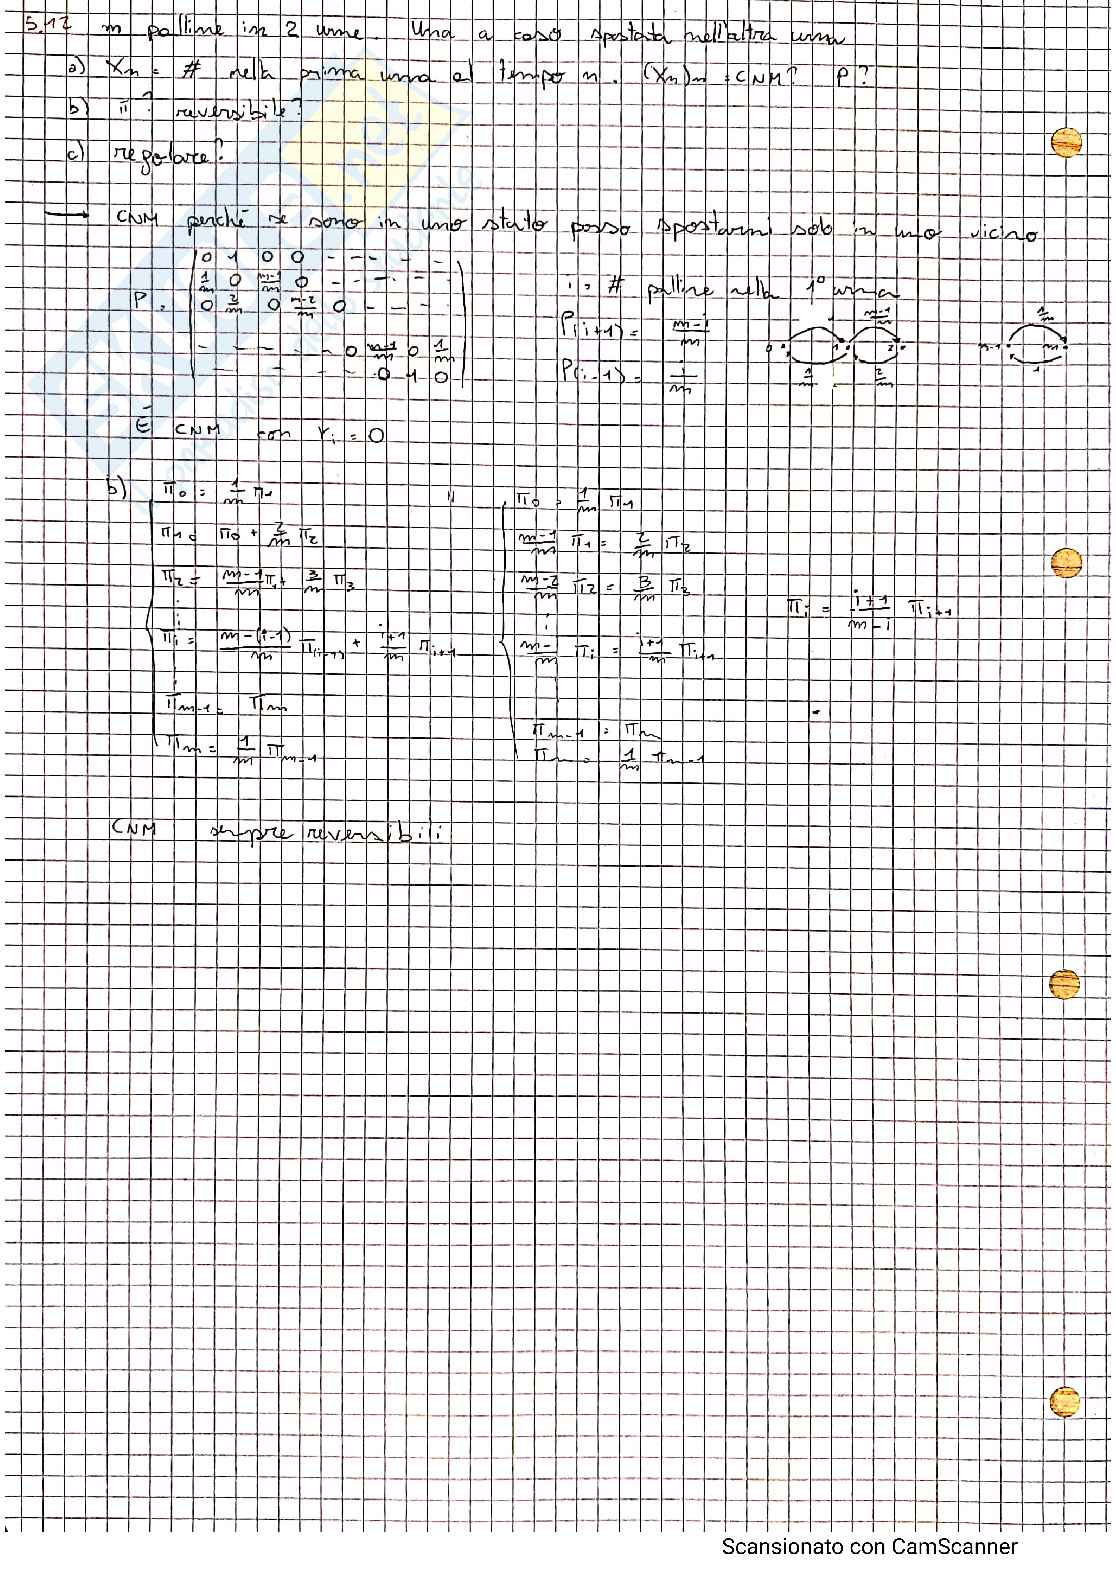 5.12 m palline in 2 urne. Una a caso spostata nell'altra urna
a) Xn = # nella prima urna al tempo n. (Xn)n = CNM? P?
b) π? reversibile?
c) regolare?
→ CNM perché se sono in uno stato posso spostarmi solo in uno vicino
P =
0 1 0 0 - - - - -
1/m 0 m-1/m 0 - - - -
0 2/m 0 m-2/m 0 - - -
- - - - - 0 m-1/m 0 1/m
- - - - - 0 1 0
i = # palline nella 1° urna
P(i+1) = m-i/m
P(i-1) = i/m
0 1 2 m-1/m 1/m 2/m
m-1 m 1/m 1
È CNM con ri = 0
b) π0 = 1/m π1
π1 = π0 + 2/m π2
π2 = m-1/m π1 + 3/m π3
πi = m-(i-1)/m π(i-1) + i+1/m πi+1
πm-1 = πm
πm = 1/m πm-1
π0 = 1/m π1
m-1/m π1 = 2/m π2
m-2/m π2 = 3/m π3
m-i/m πi = i+1/m πi+1
πm-1 = πm
πm = 1/m πm-1
πi = i+1/m-i πi+1
CNM sempre reversibili
Scansionato con CamScanner